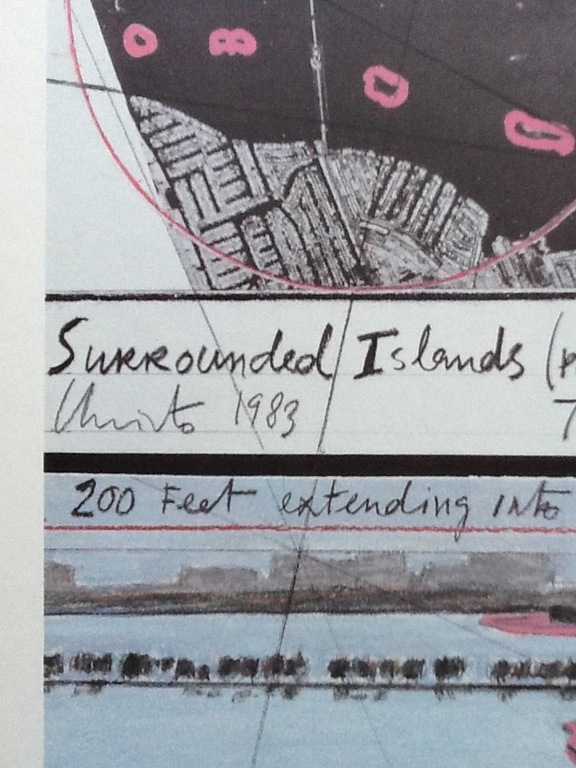 Surrounded Islands (P
Christo 1983
200 Feet extending into